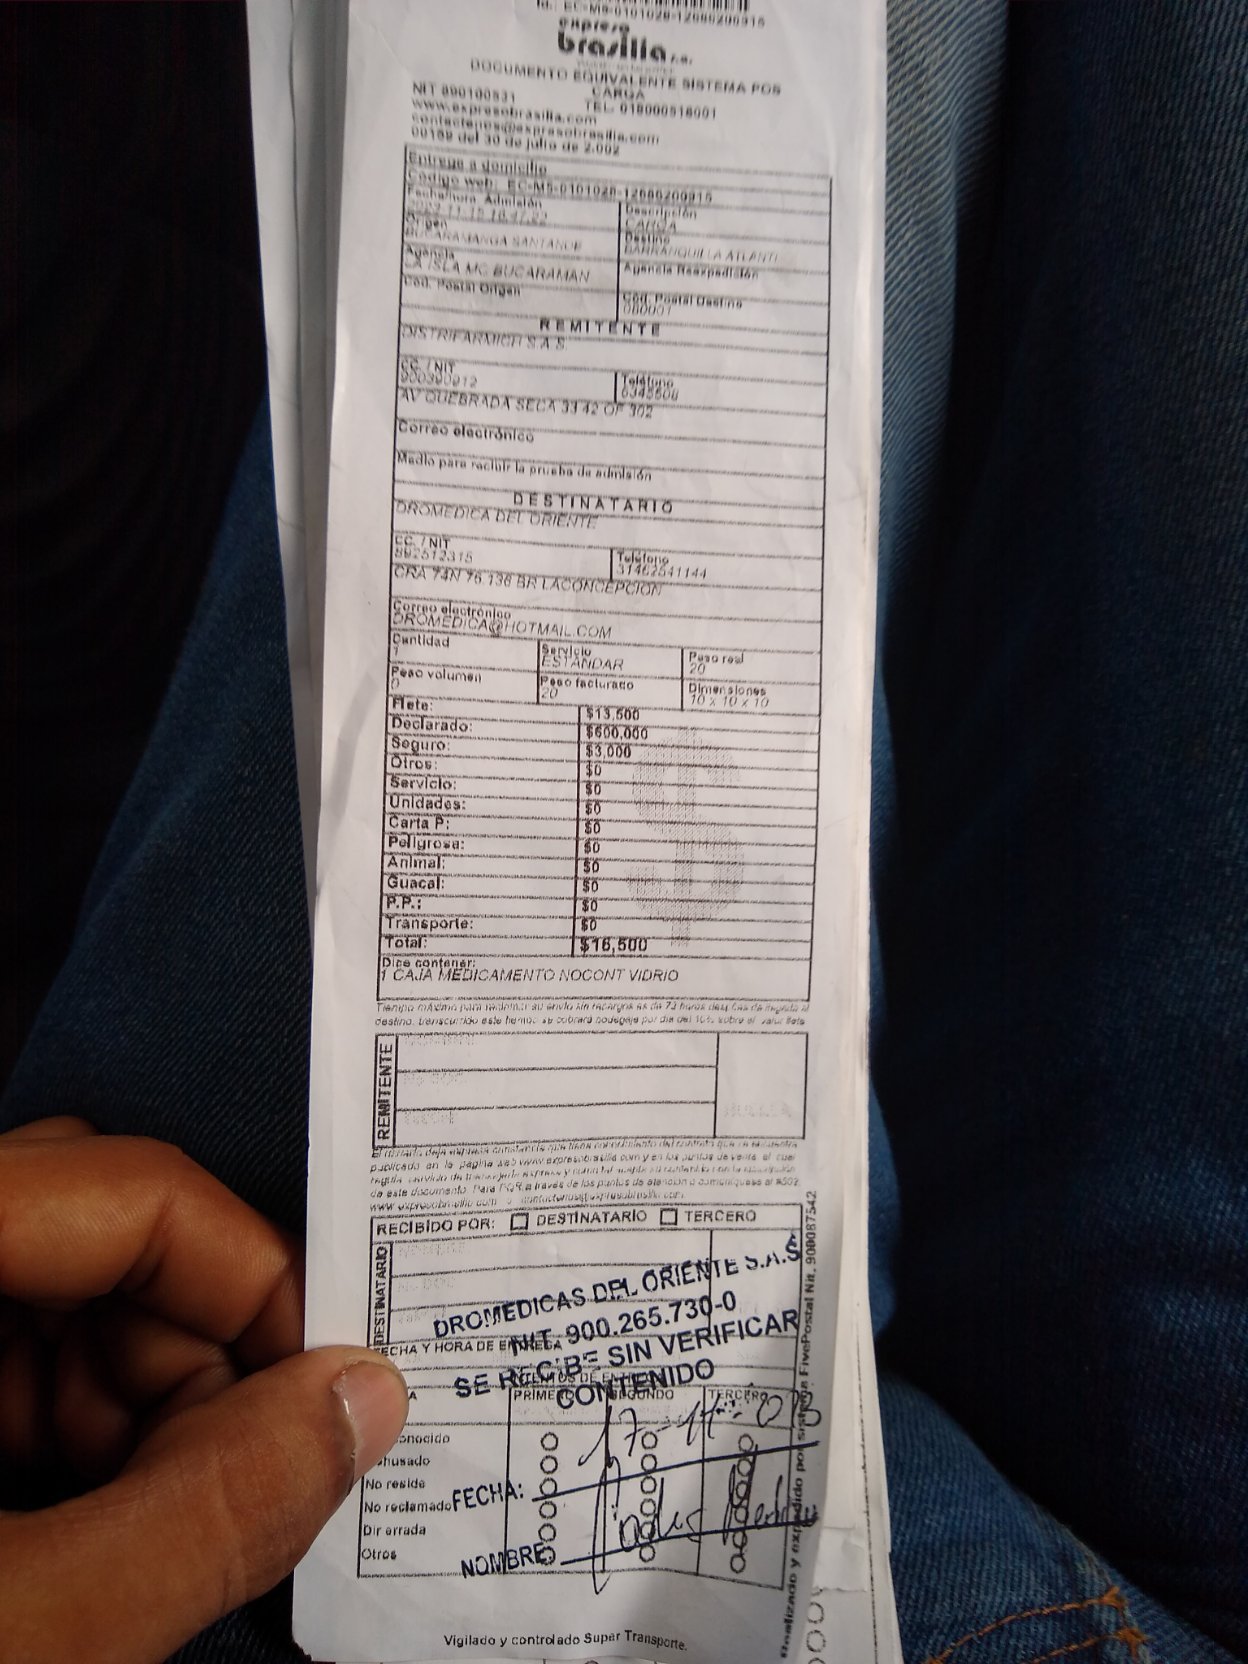 Id.: EC-MS-0101028-12686200915
expreso
brasilia s.a.
DOCUMENTO EQUIVALENTE SISTEMA POS
CARGA
NIT 890100531
TEL- 018000518001
www.expresobrasilia.com
contactenos@expresobrasilia.com
00159 del 30 de julio de 2.002
Entrega a domicilio
Código web: EC-MS-0101028-12686200915
Fecha/hora Admisión
Descripción
CARGA
Origen
BUCARAMANGA SANTANDE
Destino
BARRANQUILLA ATLANTI
Agencia
LA ISLA MC BUCARAMAN
Agencia Reexpedición
Cód. Postal Origen
Cód. Postal Destino
080001
REMITENTE
CC. / NIT
900390912
Teléfono
6345508
AV QUEBRADA SECA 33 42 OF 302
Correo electrónico
Medio para recibir la prueba de admisión
DESTINATARIO
DROMEDICA DEL ORIENTE
CC. / NIT
892512315
Teléfono
31462541144
CRA 74N 76 136 BR LACONCEPCION
Correo electrónico
DROMEDICA@HOTMAIL.COM
Cantidad
1
Servicio
ESTANDAR
Peso real
20
Peso volumen
0
Peso facturado
20
Dimensiones
10 x 10 x 10
Flete: $13,500
Declarado: $600,000
Seguro: $3,000
Otros: $0
Servicio: $0
Unidades: $0
Carta P: $0
Peligrosa: $0
Animal: $0
Guacal: $0
P.P.: $0
Transporte: $0
Total: $16,500
Dice contener:
1 CAJA MEDICAMENTO NOCONT VIDRIO
Tiempo máximo para reclamar su envío sin recargos es de 72 horas después de llegada al
destino, transcurrido este tiempo se cobrará bodegaje por día del 10% sobre el valor flete
REMITENTE
El remitente deja expresa constancia que tiene conocimiento del contrato que se encuentra
publicado en la pagina web www.expresobrasilia.com y en los puntos de venta, el cual
regula servicio de mensajería expresa y
de este documento. Para PQR a través de los puntos de atención o comuníquese al #502
www.expresobrasilia.com o contactenos@expresobrasilia.com
RECIBIDO POR: DESTINATARIO TERCERO
DESTINATARIO
DROMEDICAS DEL ORIENTE S.A.S
NIT. 900.265.730-0
SE RECIBE SIN VERIFICAR
CONTENIDO
FECHA Y HORA DE ENTREGA
PRIMERO SEGUNDO TERCERO
17-11-
onocido
ehusado
No reside
No reclamado
Dir errada
Otros
FECHA:
NOMBRE:
Realizado y expedido por sistema FivePostal Nit. 900087542
Vigilado y controlado Super Transporte.